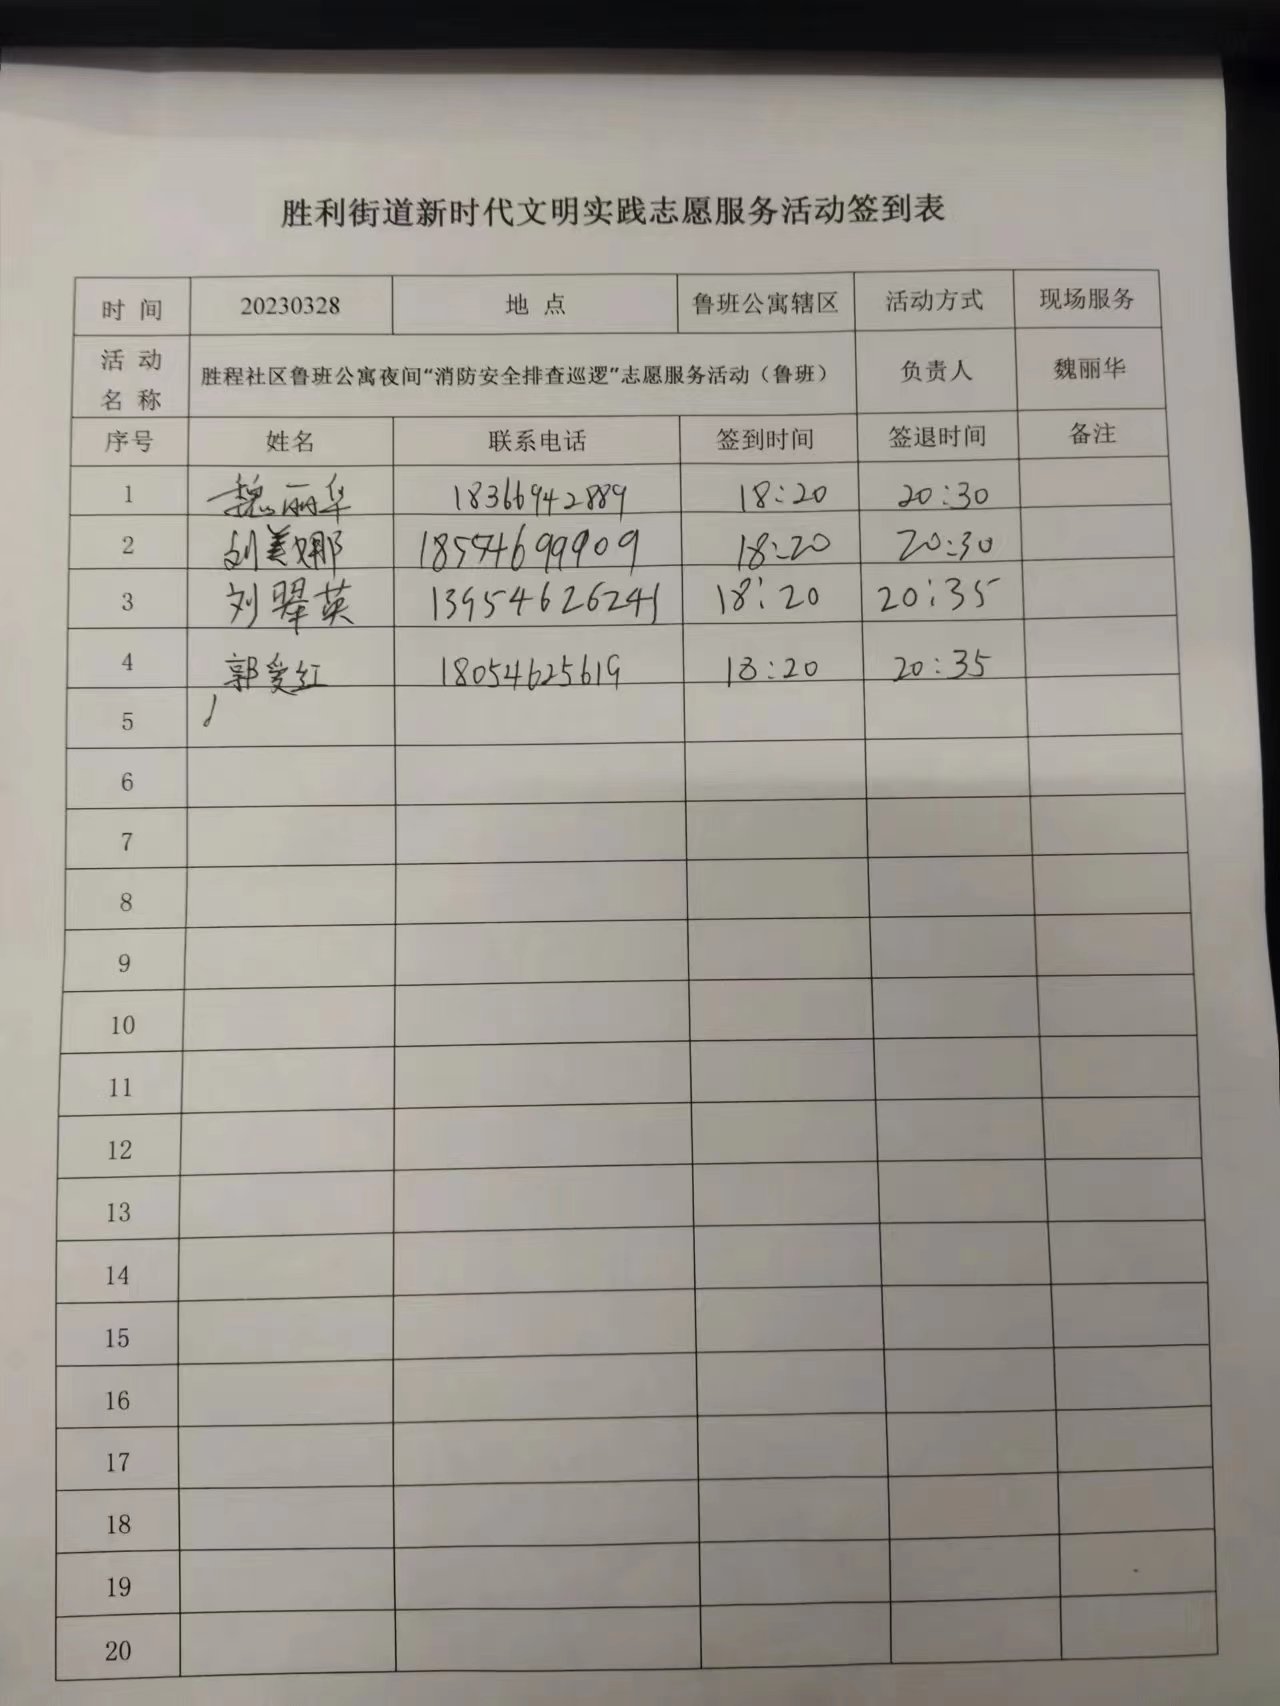 胜利街道新时代文明实践志愿服务活动签到表
时 间 20230328 地 点 鲁班公寓辖区 活动方式 现场服务
活 动 名 称 胜程社区鲁班公寓夜间“消防安全排查巡逻”志愿服务活动（鲁班） 负责人 魏丽华
序号 姓名 联系电话 签到时间 签退时间 备注
1 魏丽华 18366942889 18:20 20:30
2 刘美娜 18554699909 18:20 20:30
3 刘翠英 13954626241 18:20 20:35
4 郭爱红 18054625619 18:20 20:35
5
6
7
8
9
10
11
12
13
14
15
16
17
18
19
20